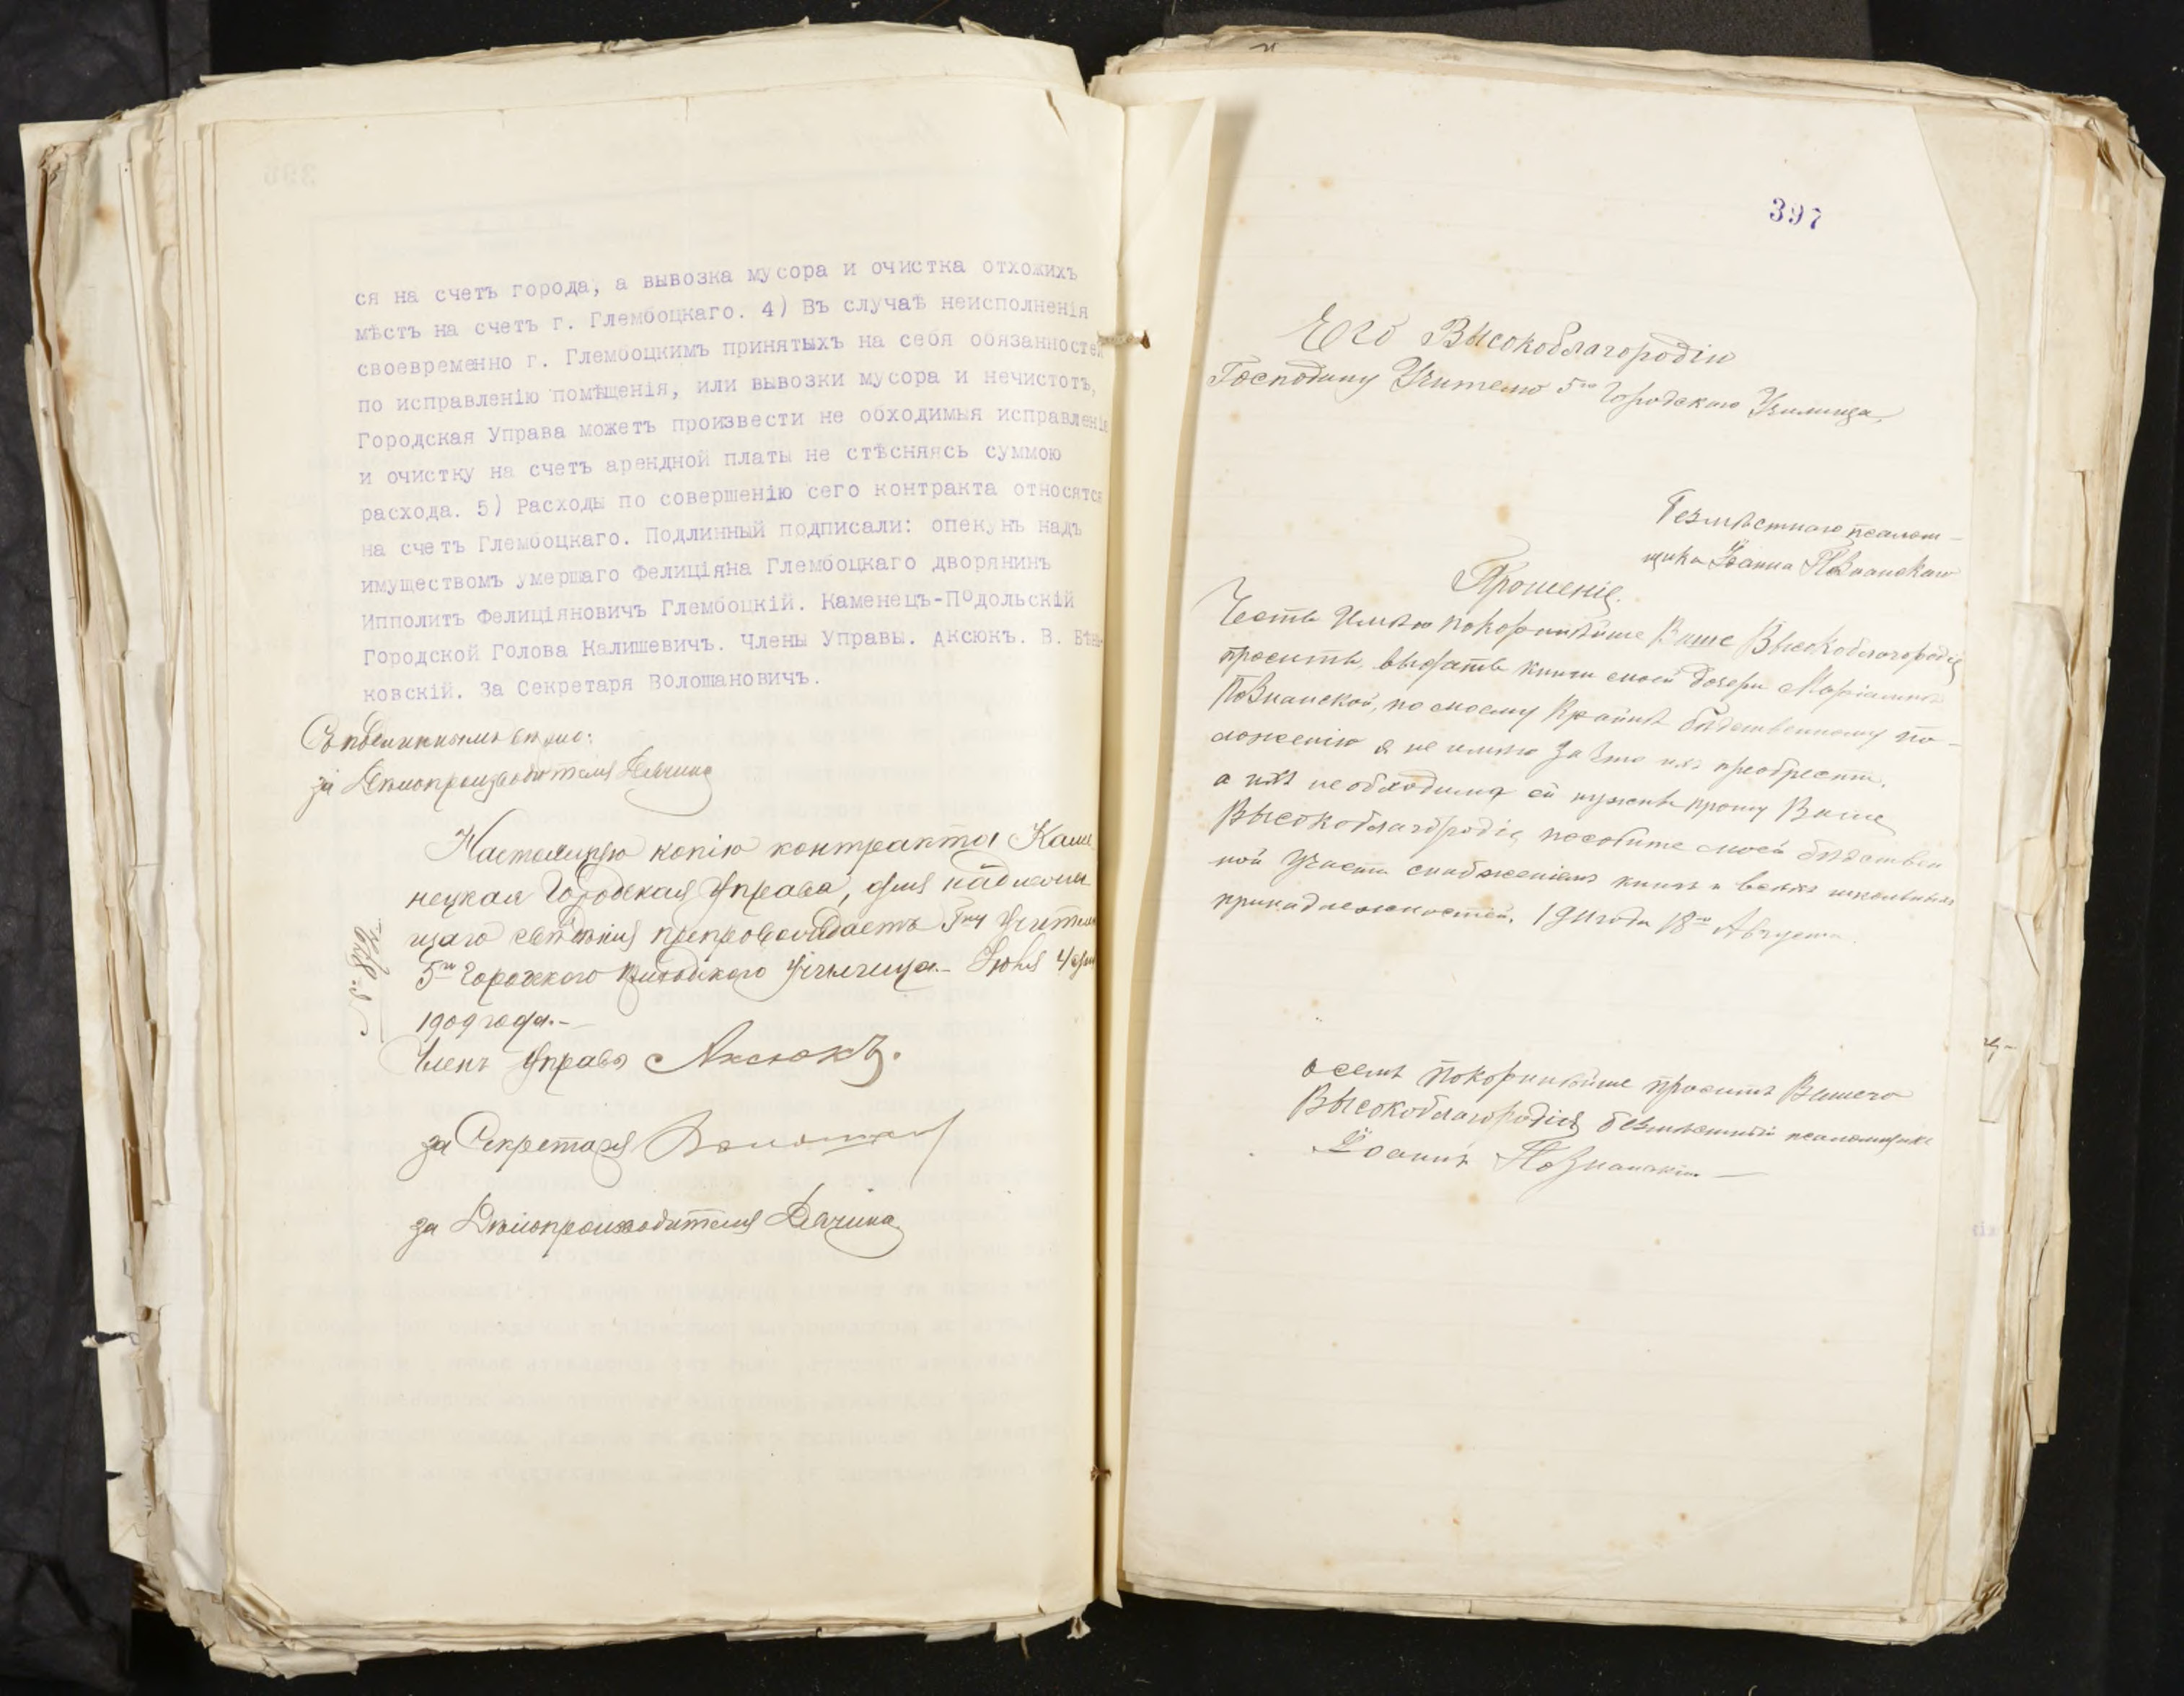 ся на счетъ города, а вывозка мусора и очистка отхожихъ
мѣстъ на счетъ г. Глембоцкаго. 4) Въ случаѣ неисполненія
своевременно г. Глембоцкимъ принятыхъ на себя обязанностей
по исправленію помѣщенія, или вывозки мусора и нечистотъ,
Городская Управа можетъ произвести не обходимыя исправленія
и очистку на счетъ арендной платы не стѣсняясь суммою
расхода. 5) Расходы по совершенію сего контракта относятся
на счетъ Глембоцкаго. Подлинный подписали: опекунъ надъ
имуществомъ умершаго Фелиціяна Глембоцкаго дворянинъ
Ипполитъ Фелиціяновичъ Глембоцкій. Каменецъ-Подольскій
Городской Голова Калишевичъ. Члены Управы. Аксюкъ. В.
ковскій. За Секретаря Волошановичъ.
Съ подлиннымъ вѣрно:
за Дѣлопроизводителя
Настоящую копію контракта Каме
нецкая Городская Управа, для надлежа
щаго свѣдѣнія препровождаетъ Гну Учителю
5го Городского Училища. 4
1909 года.-
Членъ Управы Аксюкъ.
за Секретаря
за Дѣлопроизводителя
397
Его Высокоблагородію
Господину Учителю 5го Городского Училища,
Безмѣстнаго псалом-
щика Іоанна Познанскаго
Прошеніе.
Честь Имѣю покорнѣйше Ваше Высокоблагородіе
просить, выдать книги моей дочери
Познанской, по моему Крайнѣ бѣдственному по-
ложенію я не имѣю за что ихъ преобрести,
а ихъ необходимо ей нужны прошу Ваше
Высокоблагородіе пособите моей бѣдствен
ной Участи снабженіемъ книгъ и школьныхъ
принадлежностей. 1911 года 18го Августа.
о семъ покорнѣйше проситъ Вашего
Высокоблагородія безмѣстный псаломщикъ
Іоаннъ Познанскій